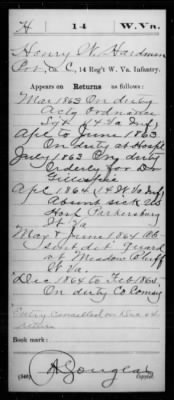 H 14 W. Va.
Henry W. Hardman
Co. C, 14 Reg't W. Va. Infantry.
Appears on Returns as follows:
Mar 1863 On duty
Actg Ordnance
Sgt 14 Va Inf
Apl to June 1863
On duty at Hospl
July 1863 On duty
Orderly for Dr
Apl 1864 (14 W Va Inf)
Absent sick US
Hosp Parkersburg
W Va
May & June 1864 Ab
sent det guard
at Meadow Bluff
W Va.
Dec 1864 to Feb 1865
On duty Co
Entry cancelled
return
Book mark:
A Douglas
(546) Copyist.